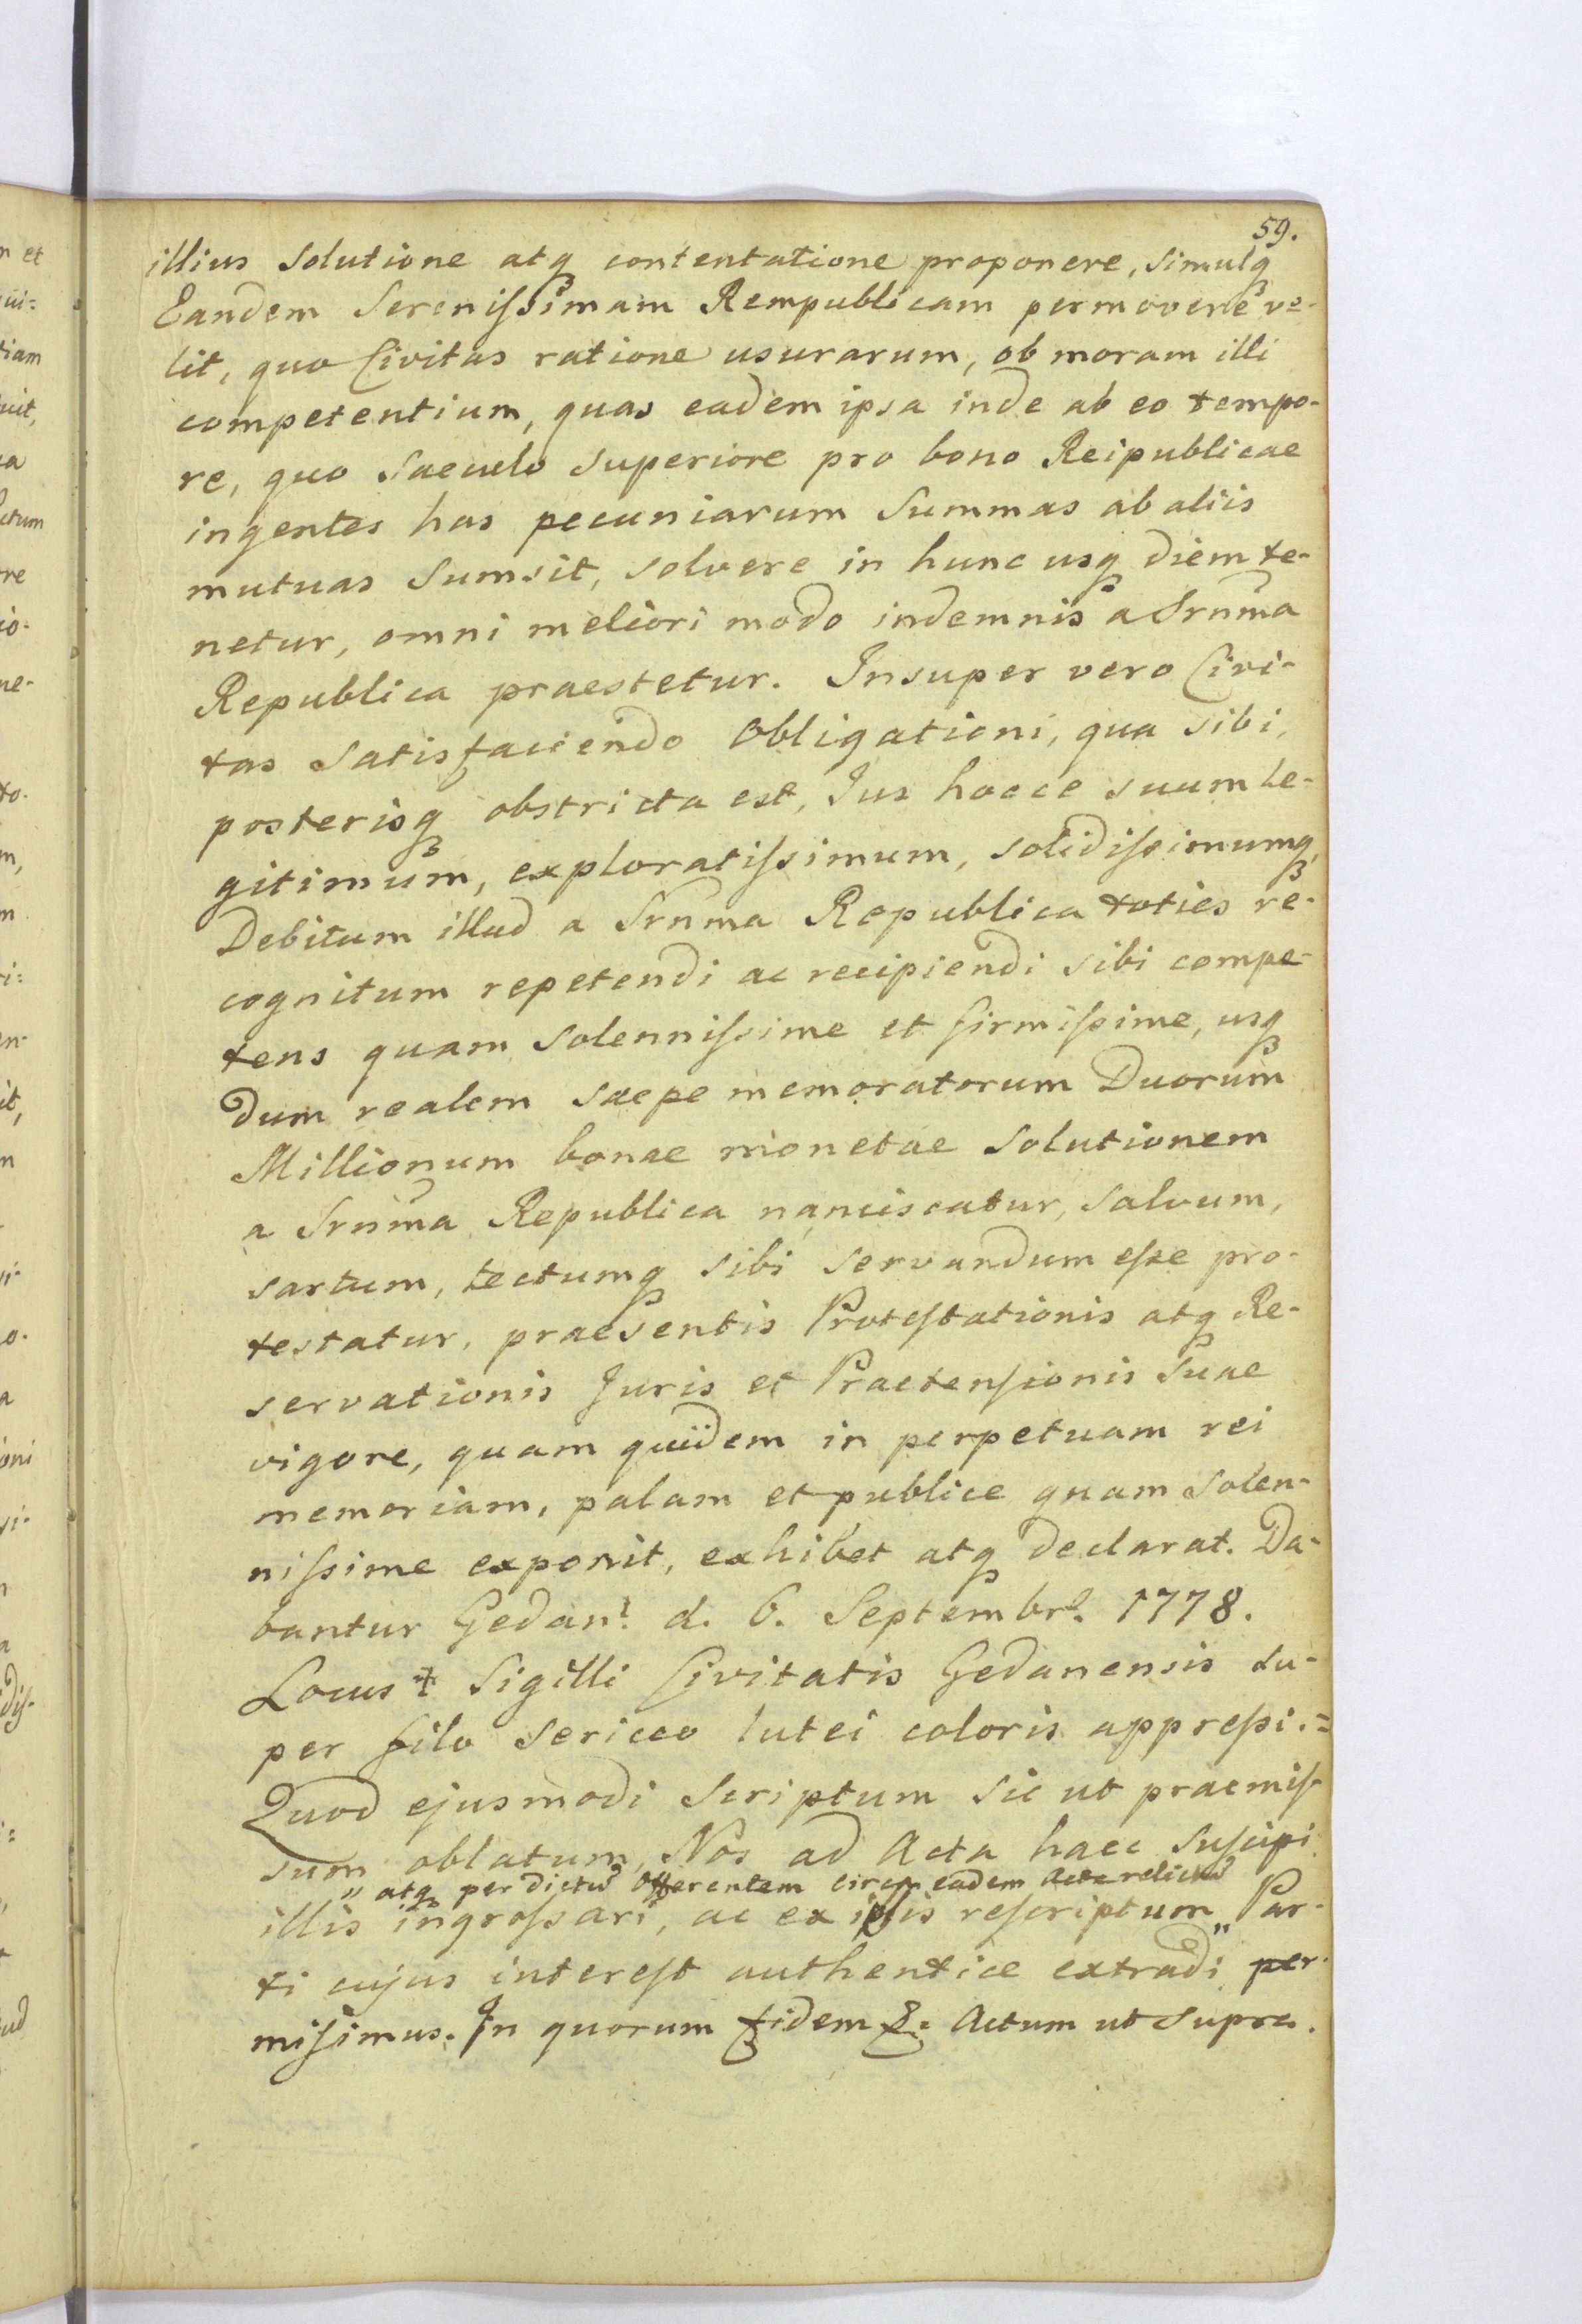 59.
illius solutione atq contentatione proponere, simulq
Eandem Serenissimam Rempublicam permovere ve-
lit, quo Civitas ratione usurarum, ob moram illi
competentium, quas eadem ipsa inde ab eo tempo-
re, quo saeculo superiore pro bono Reipublicae
ingentes has pecuniarum Summas ab aliis
mutuas sumsit, solvere in hunc usq diem te-
netur, omni meliori modo indemnis a Srnma
Republica praestetur. Insuper vero Civi-
tas satisfaciendo Obligationi, qua sibi,
posterisq obstricta est, Jus hocce suum le-
gitimum, exploratissimum, solidissimumq,
Debitum illud a Srnma Republica toties re-
cognitum repetendi ac recipiendi sibi compe-
tens quam solennissime et firmissime, usq
dum realem saepe memoratorum Duorum
Millionum bonae monetae solutionem
a Srnma Republica nanciscatur, salvum,
sartum, tectumq sibi servandum esse pro-
testatur, praesentis Protestationis atq Re-
servationis Juris et Praetensionis suae
vigore, quam quidem in perpetuam rei
memoriam, palam et publice quam solen-
nissime exponit, exhibet atq declarat. Da-
bantur Gedani d. 6. Septembr. 1778.
Locus ‡ Sigilli Civitatis Gedanensis su-
per filo sericeo lutei coloris appressi.=
Quod ejusmodi Scriptum sic ut praemis-
sum oblatum, Nos ad Acta haec suscipi
" atq per dictu Offerentem circa eadem Acta relictu
illis ingrossari, ac ex ipsis rescriptum Par-
ti cujus interest authentice extradi" per-
misimus. In quorum fidem &. Actum ut supra.
n et
üi:
tiam
uit,
ctum
re
io-
ne-
to-
m,
m
i:
en-
it,
n
vi-
o.
a
oni
vi-
n
a
dis-
i:
ud